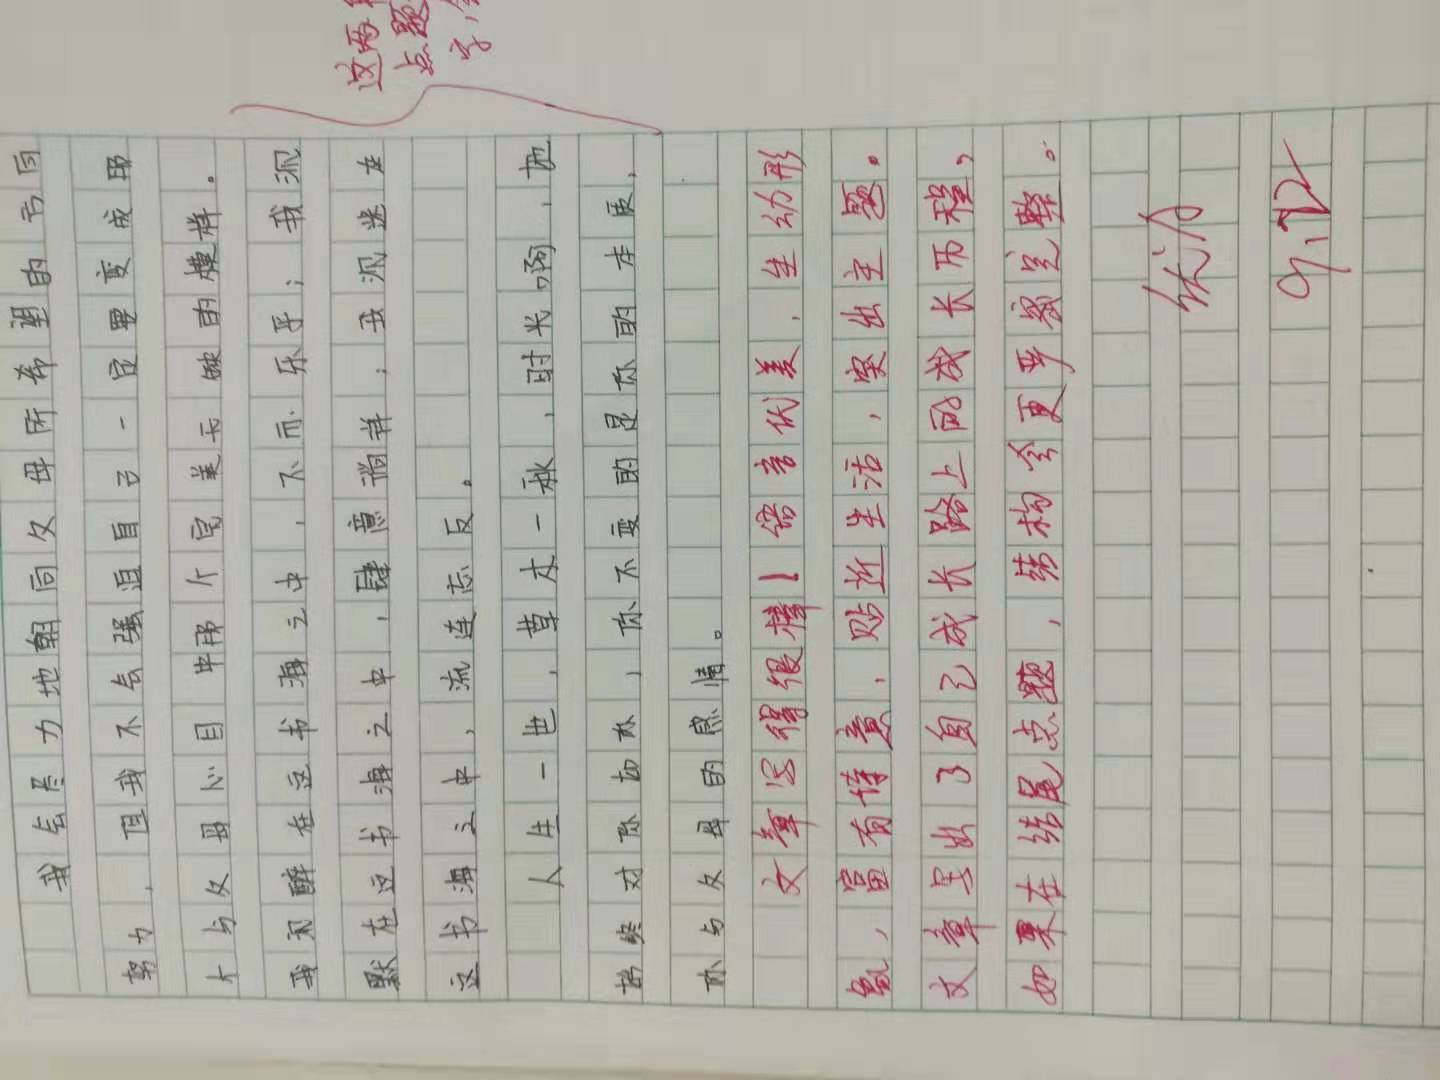 我会尽力地朝向父母所希望的方向
努力，但我不会强迫自己一定要变成那
个与父母心目中那个完美无缺的模样。
我沉醉在这书海之中，不而乐乎；我沉
默在这书海之中，肆意徜徉；我沉迷在
这书海之中，流连忘反。
人生一世，草木一秋，时光啊，她
始终对你切切，你不变的是你的本质、
你与父母的感情。
这两
点题
字，
文章写得很棒！语言优美、生动形
象，富有诗意，贴近生活，突出主题。
文章呈出了自己成长路上的成长历程，
如果在结尾点题，结构会更严密完整。
9.12